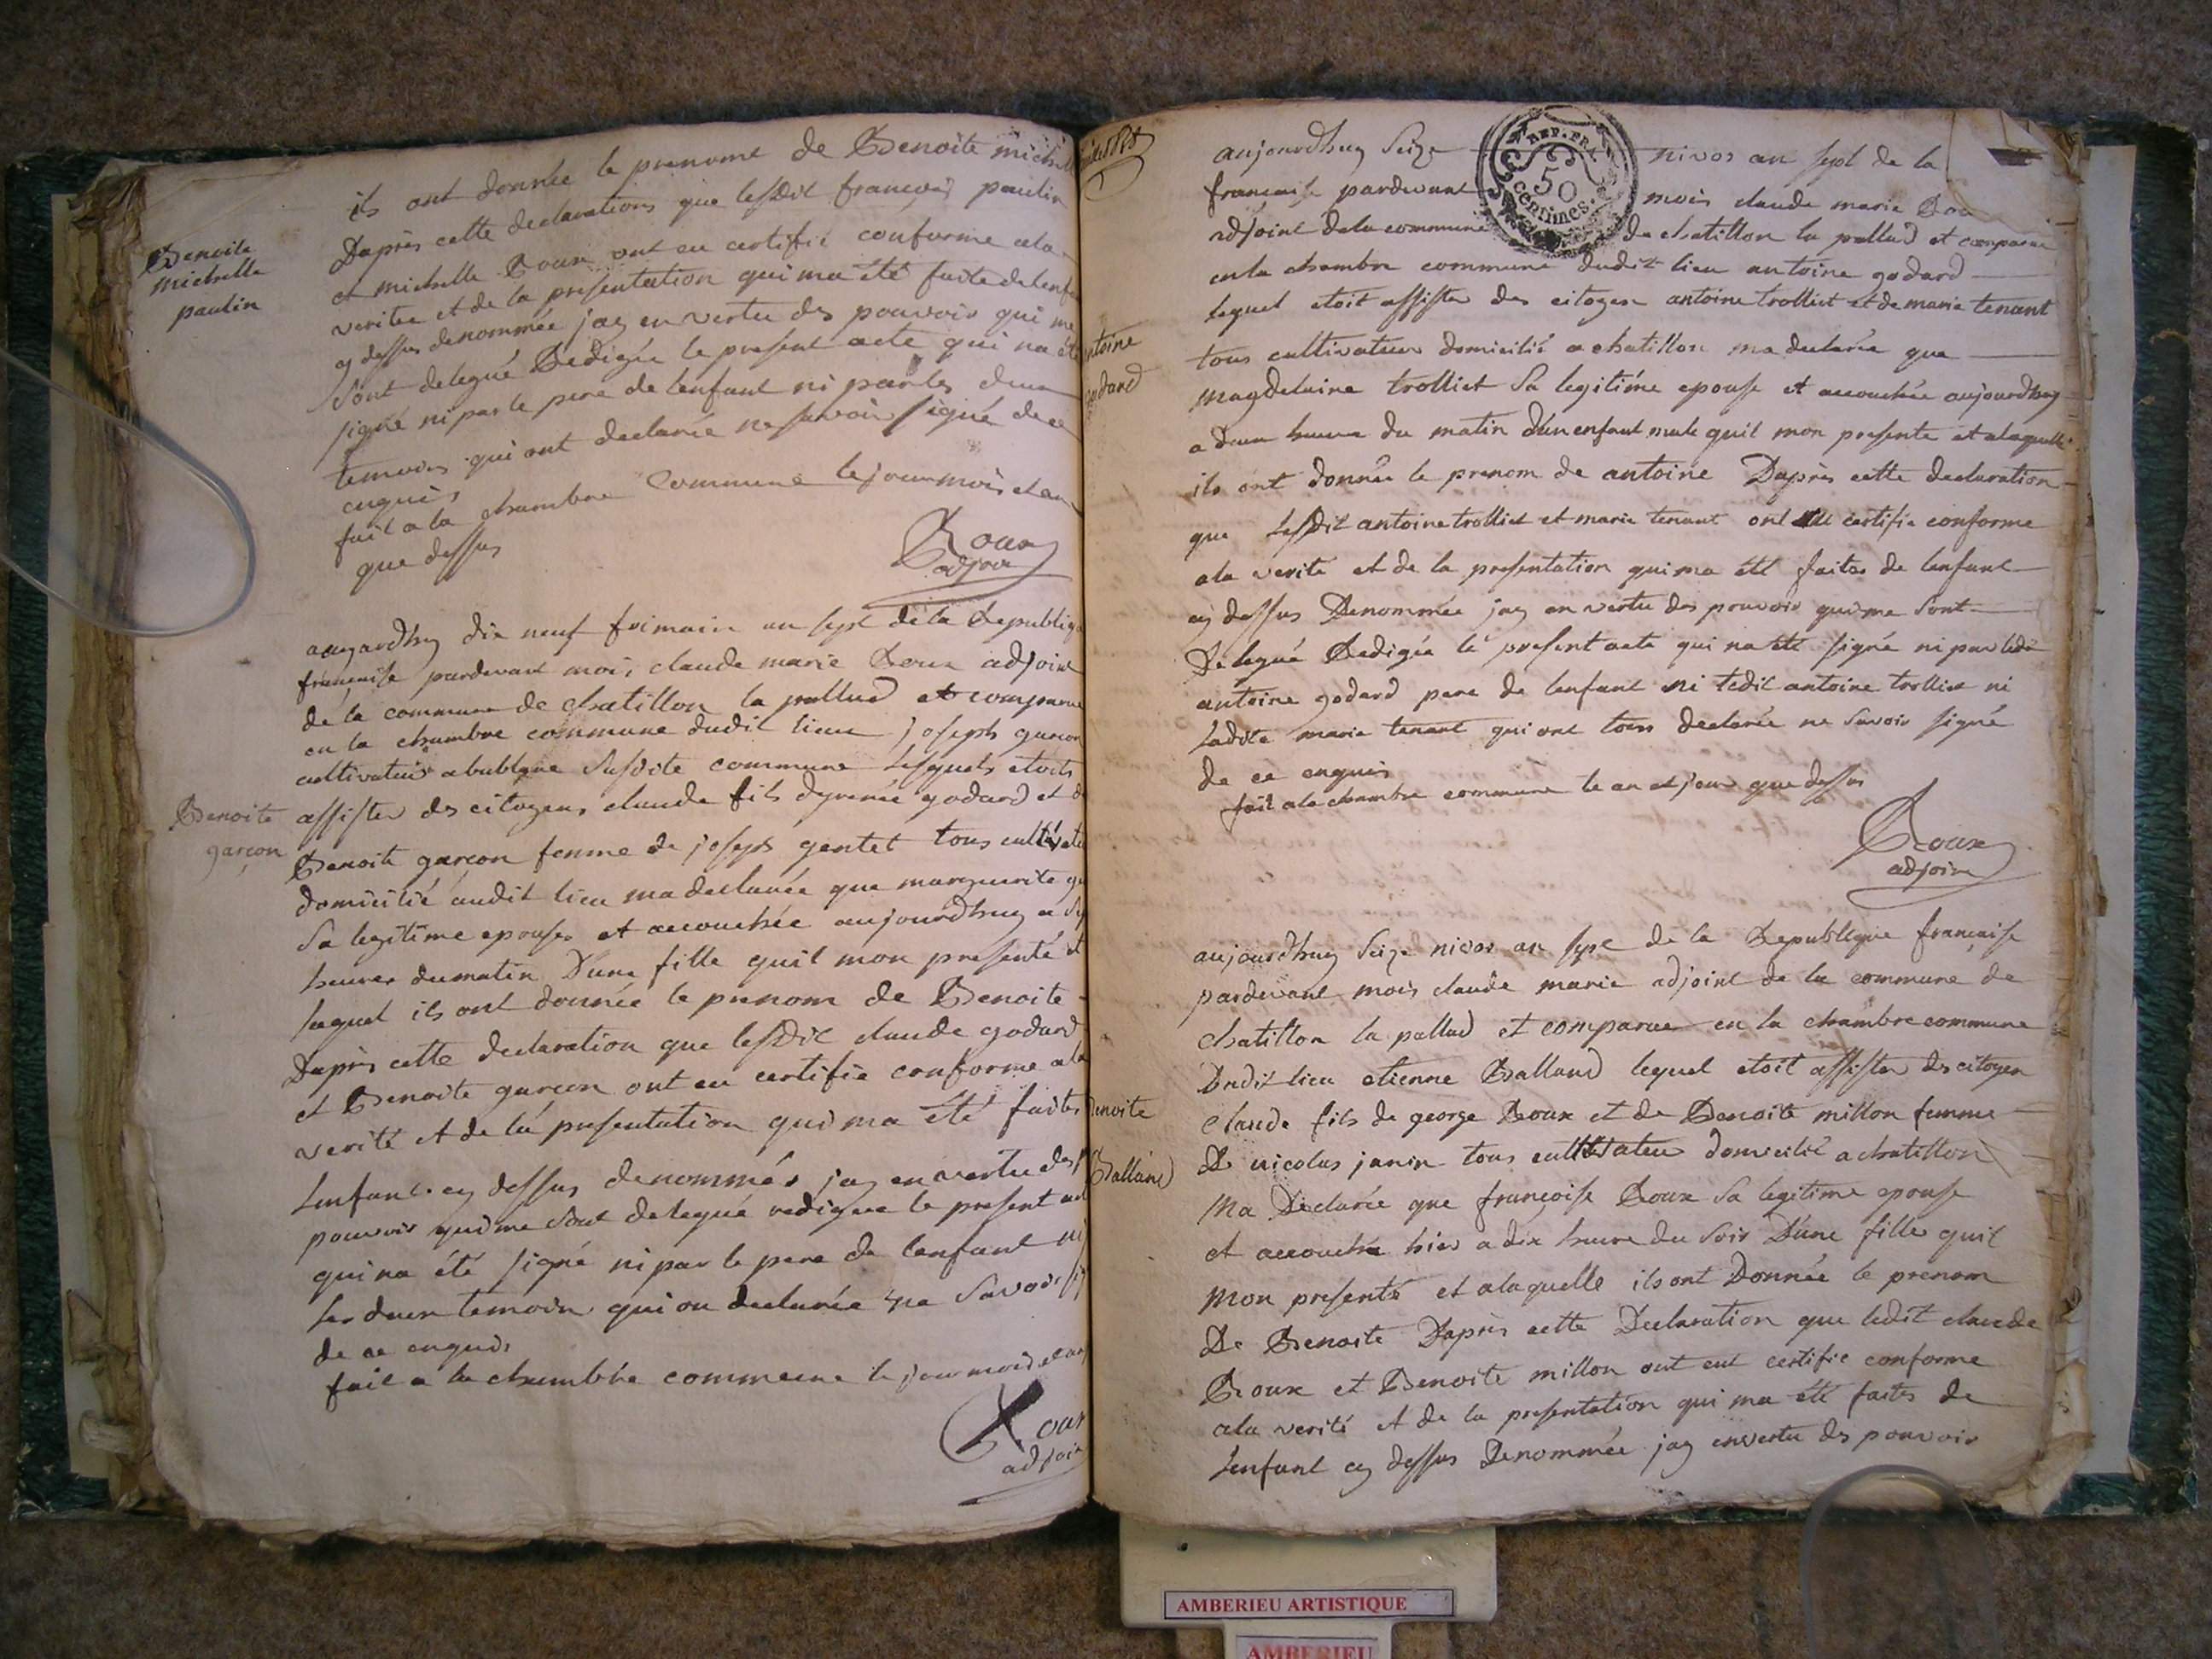 ils ont donnée le prenomt de Benoite michel
Daprès cette declarations que lesdit francois paulin
Benoite
michelle
paulin
et michelle Roux ont eu certifié conforme ala
veritee et de la presentation qui ma été faite de lenfa
cy dessus denommée jay en vertu des pouvoir qui me
sont delegué Redigée le present acte qui na été
signé ni par le pere de lenfant ni par les deux
temoins qui ont declarée ne savoir signé de ce
enquis
fait a la chambre commune le jour mois et an
que dessus
Roux
adjoin
aujourdhuy dix neuf frimair an sept de la Republiq
francaise pardevant mois claude marie Roux adjoint
de la commune de chatillon la pallud et comparue
en la chambre commune dudit lieu joseph garcon
cultivateur susdite commune lesquels etoits
Benoite
garçon
assister des citoyens claude fils godard et d
Benoite garçon femme de joseph gentet tous cultivate
domicilié audit lieu ma declarée que marguerite
sa legitime epouse et accouchée aujourdhuy a
heures du matin D'une fille quil mon presenté et
laquel ils ont donnée le prenom de Benoite
Daprès cette declaration que lesdit claude godard
et Benoite garcon ont eu certifie conforme a la
verité et de la presentation qui ma été faites
lenfant cy dessus denommée jay en vertu des p
pouvoir qui me sont delegué redigee le present act
qui na été signé ni par le pere de lenfant ni
les deux temoin qui on declarée ne savoir si
de ce enquis
fait a la chambre commune le jour mois et an
Roux
adjoin
aujourdhuy seize nivos an sept de la
REP. FRA.
50
centimes.
francaise pardevant mois claude marie Rou
adjoint dela commune de chatillon la pallud et comparue
en la chambre commune dudit lieu antoine godard
lequel etoit assister des citoyen antoine trolliet et de marie tenant
ntoine
godard
tous cultivateur domicilié a chatillon ma declarée que
magdelaine trolliet sa legitime epouse et accouchée aujourdhuy
a deux heure du matin d'un enfant male quil mon presente et alaquelle
ils ont donnée le prenom de antoine Daprès cette declaration
que lesdit antoine trolliet et marie tenant ont certifie conforme
ala verite et de la presentation qui ma été faites de lenfant
cy dessus Denommée jay en vertu des pouvoir qui me sont
Delegué Redigée le present acte qui na été signé ni par ledi
antoine godard pere de lenfant ni ledit antoine trolliet ni
ladite marie tenant qui ont tous declarée ne savoir signé
de ce enquis
fait ala chambre commune le an et jour que dessus
Roux
adjoin
aujourdhuy seize nivos an sept de la Republique francaise
pardevant mois claude marie adjoint de la commune de
chatillon la pallud et comparue en la chambre commune
Dudit lieu etienne Balland lequel etoit assister des citoyen
enoite
Balland
claude fils de george Roux et de Benoite millon femme
De nicolas janin tous cultivateur domicilié a chatillon
Ma Declarée que francoise Roux sa legitime epouse
et accouchée hier a dix heure du soir D'une fille quil
mon presenté et alaquelle ils ont Donnée le prenom
De Benoite Daprès cette Declaration que ledit claude
Roux et Benoite millon ont eut certifie conforme
ala verité et de la presentation qui ma été faites de
lenfant cy dessus Denommée jay envertu des pouvoir
AMBERIEU ARTISTIQUE
AMBERIEU